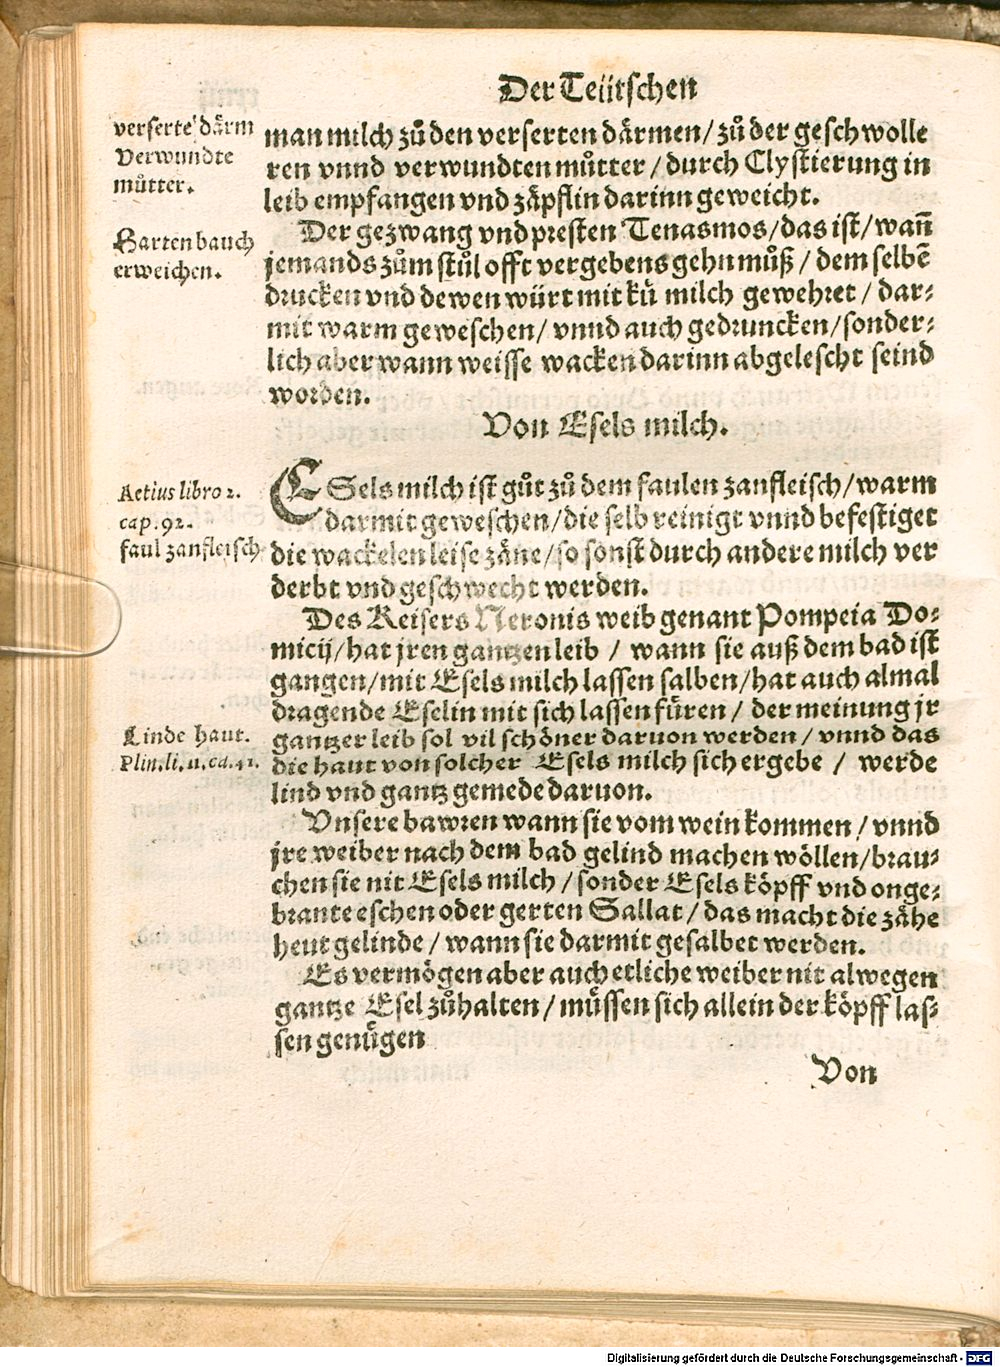 Der Teütschen
verserte därm
Verwundte
můtter.
man milch zů den verserten därmen/ zů der geschwolle
ren vnnd verwundten můtter / durch Clystierung in
leib empfangen vnd zäpflin darinn geweicht.
Harten bauch
erweichen.
Der gezwang vnd presten Tenasmos/das ist/ wañ
jemands zům stůl offt vergebens gehn můß / dem selbẽ
drucken vnd dewen würt mit kü milch gewehret / dar⸗
mit warm geweschen/ vnnd auch gedruncken/sonder⸗
lich aber wann weisse wacken darinn abgelescht seind
worden.
Von Esels milch.
Aetius libro 2.
cap. 92.
faul zanfleisch
ESels milch ist gůt zů dem faulen zanfleisch/warm
darmit geweschen/die selb reinigt vnnd befestiget
die wackelen leise zäne/so sonst durch andere milch ver
derbt vnd geschwecht werden.
Des Keisers Neronis weib genant Pompeia Do⸗
micij/hat jren gantzen leib / wann sie auß dem bad ist
gangen/mit Esels milch lassen salben/hat auch almal
dragende Eselin mit sich lassen füren / der meinung jr
Linde haut.
Plin.li.11.ca.41.
gantzer leib sol vil schöner daruon werden / vnnd das
die haut von solcher Esels milch sich ergebe / werde
lind vnd gantz gemede daruon.
Vnsere bawren wann sie vom wein kommen / vnnd
jre weiber nach dem bad gelind machen wöllen/brau⸗
chen sie nit Esels milch / sonder Esels köpff vnd onge⸗
brante eschen oder gerten Sallat / das macht die zähe
heut gelinde / wann sie darmit gesalbet werden.
Es vermögen aber auch etliche weiber nit alwegen
gantze Esel zůhalten / müssen sich allein der köpff las⸗
sen genügen
Von
Digitalisierung gefördert durch die Deutsche Forschungsgemeinschaft - DFG